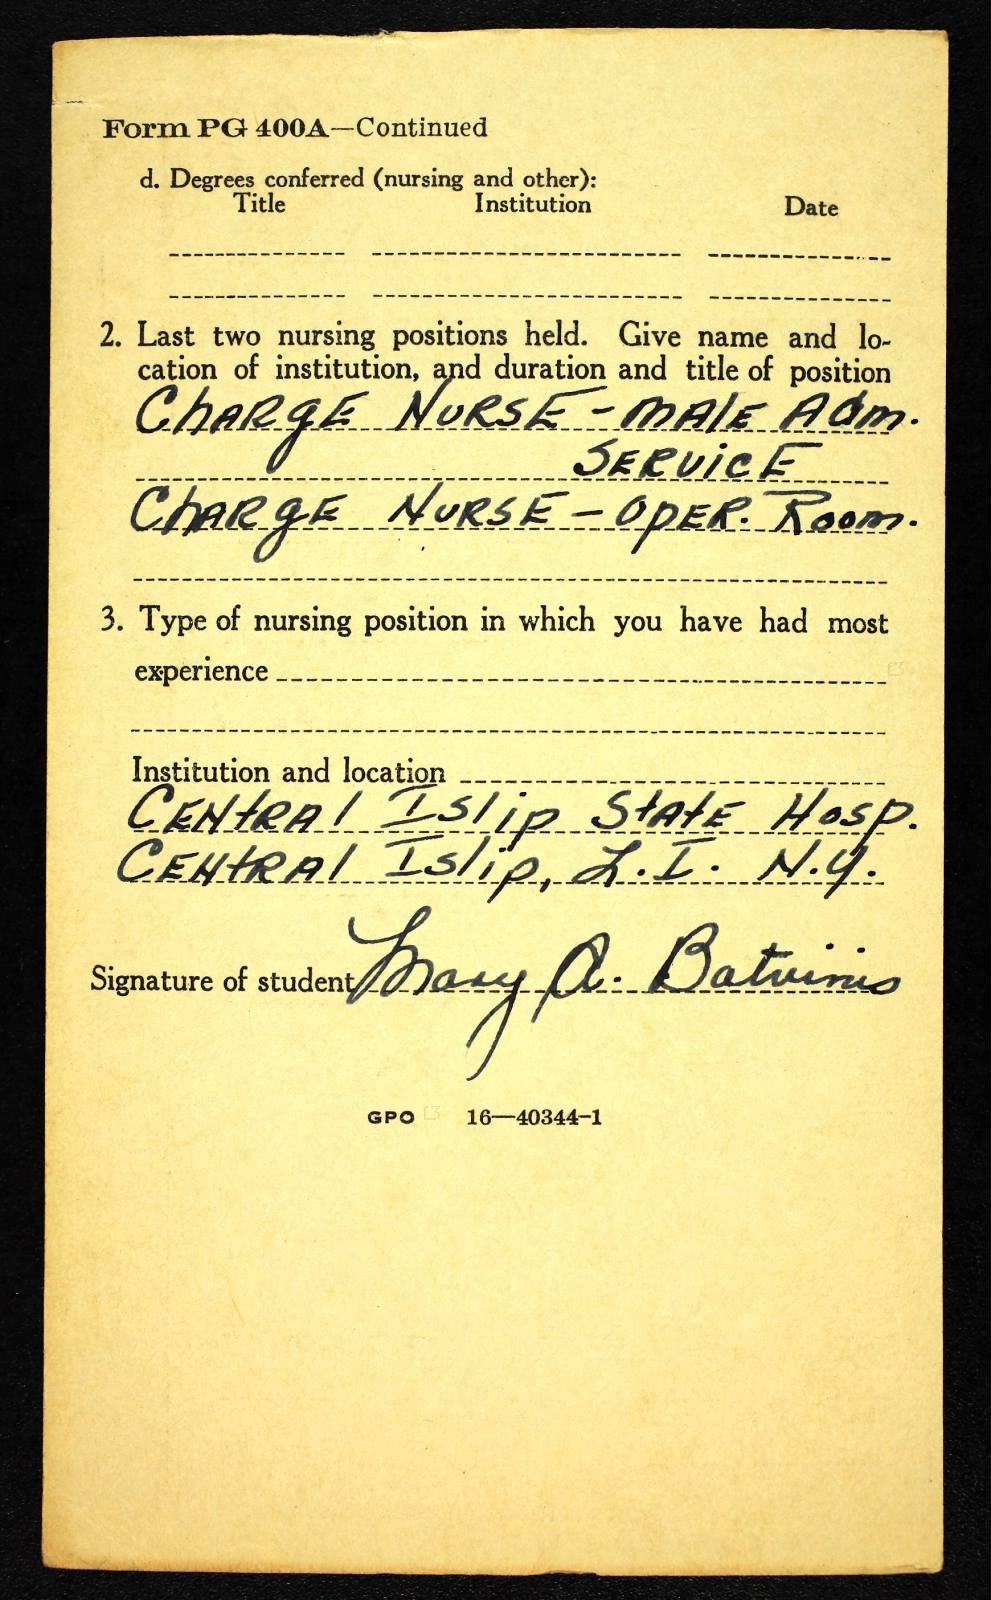 Form PG 400A—Continued
d. Degrees conferred (nursing and other):
Title Institution Date
2. Last two nursing positions held. Give name and lo-
cation of institution, and duration and title of position
CHARGE NURSE - MALE Adm.
SERVICE
CHARGE NURSE - OPER. Room.
3. Type of nursing position in which you have had most
experience
Institution and location
CENTRAL ISlip STATE HOSP.
CENTRAL ISlip, L.I. N.Y.
Signature of student Mary A. Batvinis
GPO 16—40344-1